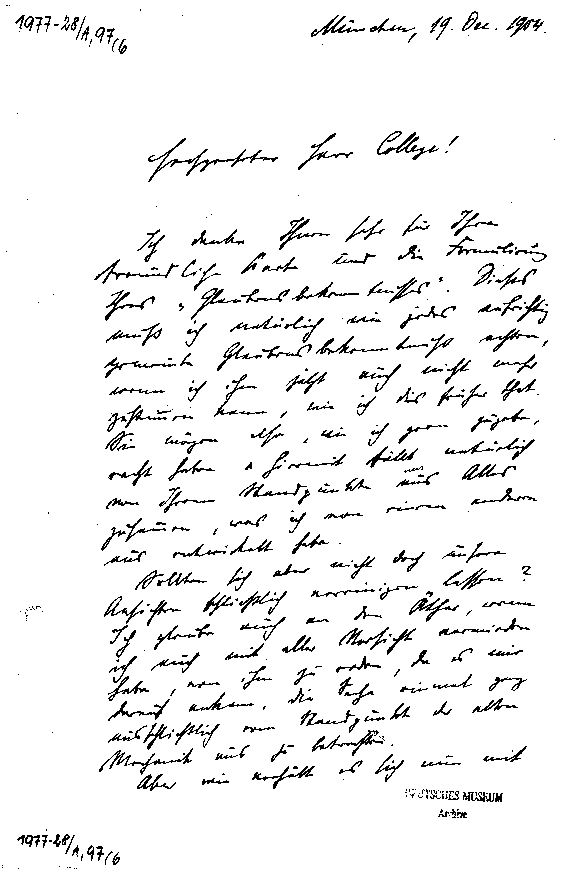 1977-28/A,97(6
München, 19. Dec. 1904.
Hochgeehrter Herr College!
Ich danke Ihnen sehr für Ihre
freundliche Karte und die Formulirung
Ihres „Glaubensbekenntnisses“. Dieses
muß ich natürlich wie jedes aufrichtig
gemeinte Glaubensbekenntniß achten,
wenn ich ihm jetzt auch nicht mehr
zustimmen kann, wie ich das früher that.
Sie mögen also, wie ich gern zugebe,
recht haben & hiermit fällt natürlich
von Ihrem Standpunkte aus Alles
zusammen, was ich von einem anderen
aus entwickelt habe.
Sollten sich aber nicht doch unsere
Ansichten schließlich vereinigen lassen?
Ich glaube auch an den Äther, wenn
ich auch mit aller Vorsicht vermieden
habe, von ihm zu reden, da es mir
darauf ankam, die Sache einmal ganz
ausschließlich vom Standpunkt der alten
Mechanik aus zu betrachten.
Aber wie verhält es sich nun mit
DEUTSCHES MUSEUM
Archive
1977-28/A,97(6